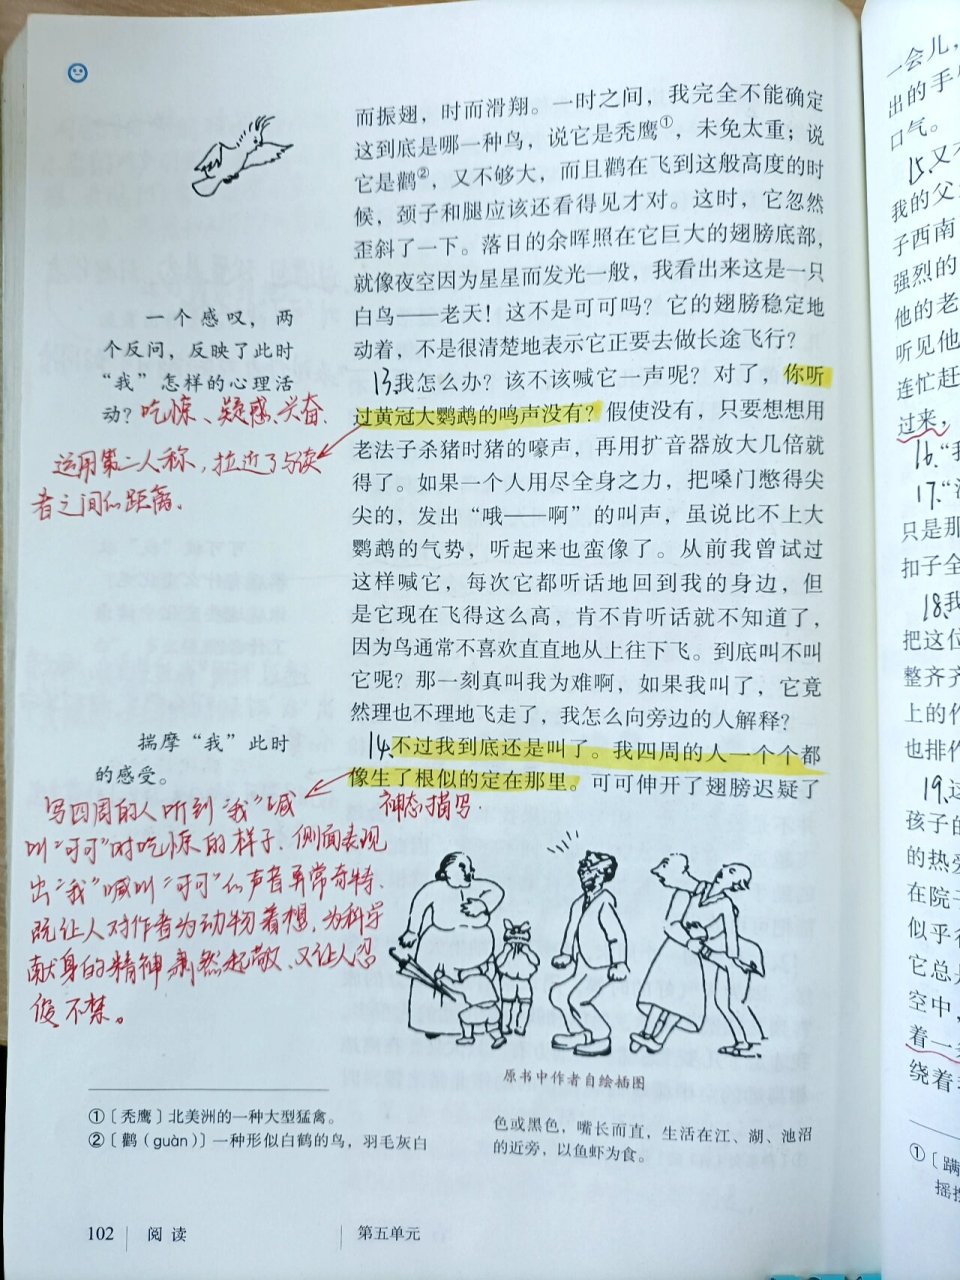 而振翅，时而滑翔。一时之间，我完全不能确定
这到底是哪一种鸟，说它是秃鹰①，未免太重；说
它是鹳②，又不够大，而且鹳在飞到这般高度的时
候，颈子和腿应该还看得见才对。这时，它忽然
歪斜了一下。落日的余晖照在它巨大的翅膀底部，
就像夜空因为星星而发光一般，我看出来这是一只
白鸟——老天！这不是可可吗？它的翅膀稳定地
动着，不是很清楚地表示它正要去做长途飞行？
一个感叹，两
个反问，反映了此时
“我”怎样的心理活
动？吃惊、疑惑、兴奋.
13.我怎么办？该不该喊它一声呢？对了，你听
过黄冠大鹦鹉的鸣声没有？假使没有，只要想想用
老法子杀猪时猪的嚎声，再用扩音器放大几倍就
得了。如果一个人用尽全身之力，把嗓门憋得尖
尖的，发出“哦——啊”的叫声，虽说比不上大
鹦鹉的气势，听起来也蛮像了。从前我曾试过
这样喊它，每次它都听话地回到我的身边，但
是它现在飞得这么高，肯不肯听话就不知道了，
因为鸟通常不喜欢直直地从上往下飞。到底叫不叫
它呢？那一刻真叫我为难啊，如果我叫了，它竟
然理也不理地飞走了，我怎么向旁边的人解释？
运用第二人称，拉近了与读
者之间的距离.
14.不过我到底还是叫了。我四周的人一个个都
像生了根似的定在那里。可可伸开了翅膀迟疑了
揣摩“我”此时
的感受。
神态描写.
写四周的人听到“我”喊
叫“可可”时吃惊的样子.侧面表现
出“我”喊叫“可可”的声音异常奇特.
既让人对作者为动物着想，为科学
献身的精神肃然起敬、又让人忍
俊不禁。
原书中作者自绘插图
①〔秃鹰〕北美洲的一种大型猛禽。
②〔鹳（guàn）〕一种形似白鹤的鸟，羽毛灰白
色或黑色，嘴长而直，生活在江、湖、池沼
的近旁，以鱼虾为食。
102 阅读 第五单元
一会儿，
出的手
口气。
15.又
我的父
子西南
强烈的
他的老
听见他
连忙赶
过来，
16.“我
17.“
只是那
扣子全
18.我
把这位
整齐齐
上的作
也排作
19.这
孩子的
的热爱
在院子
似乎
它总是
空中，
着一
绕着
①〔蹒
摇摆